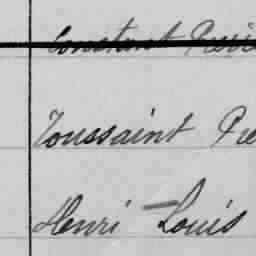 Constant
Toussaint
Henri Louis